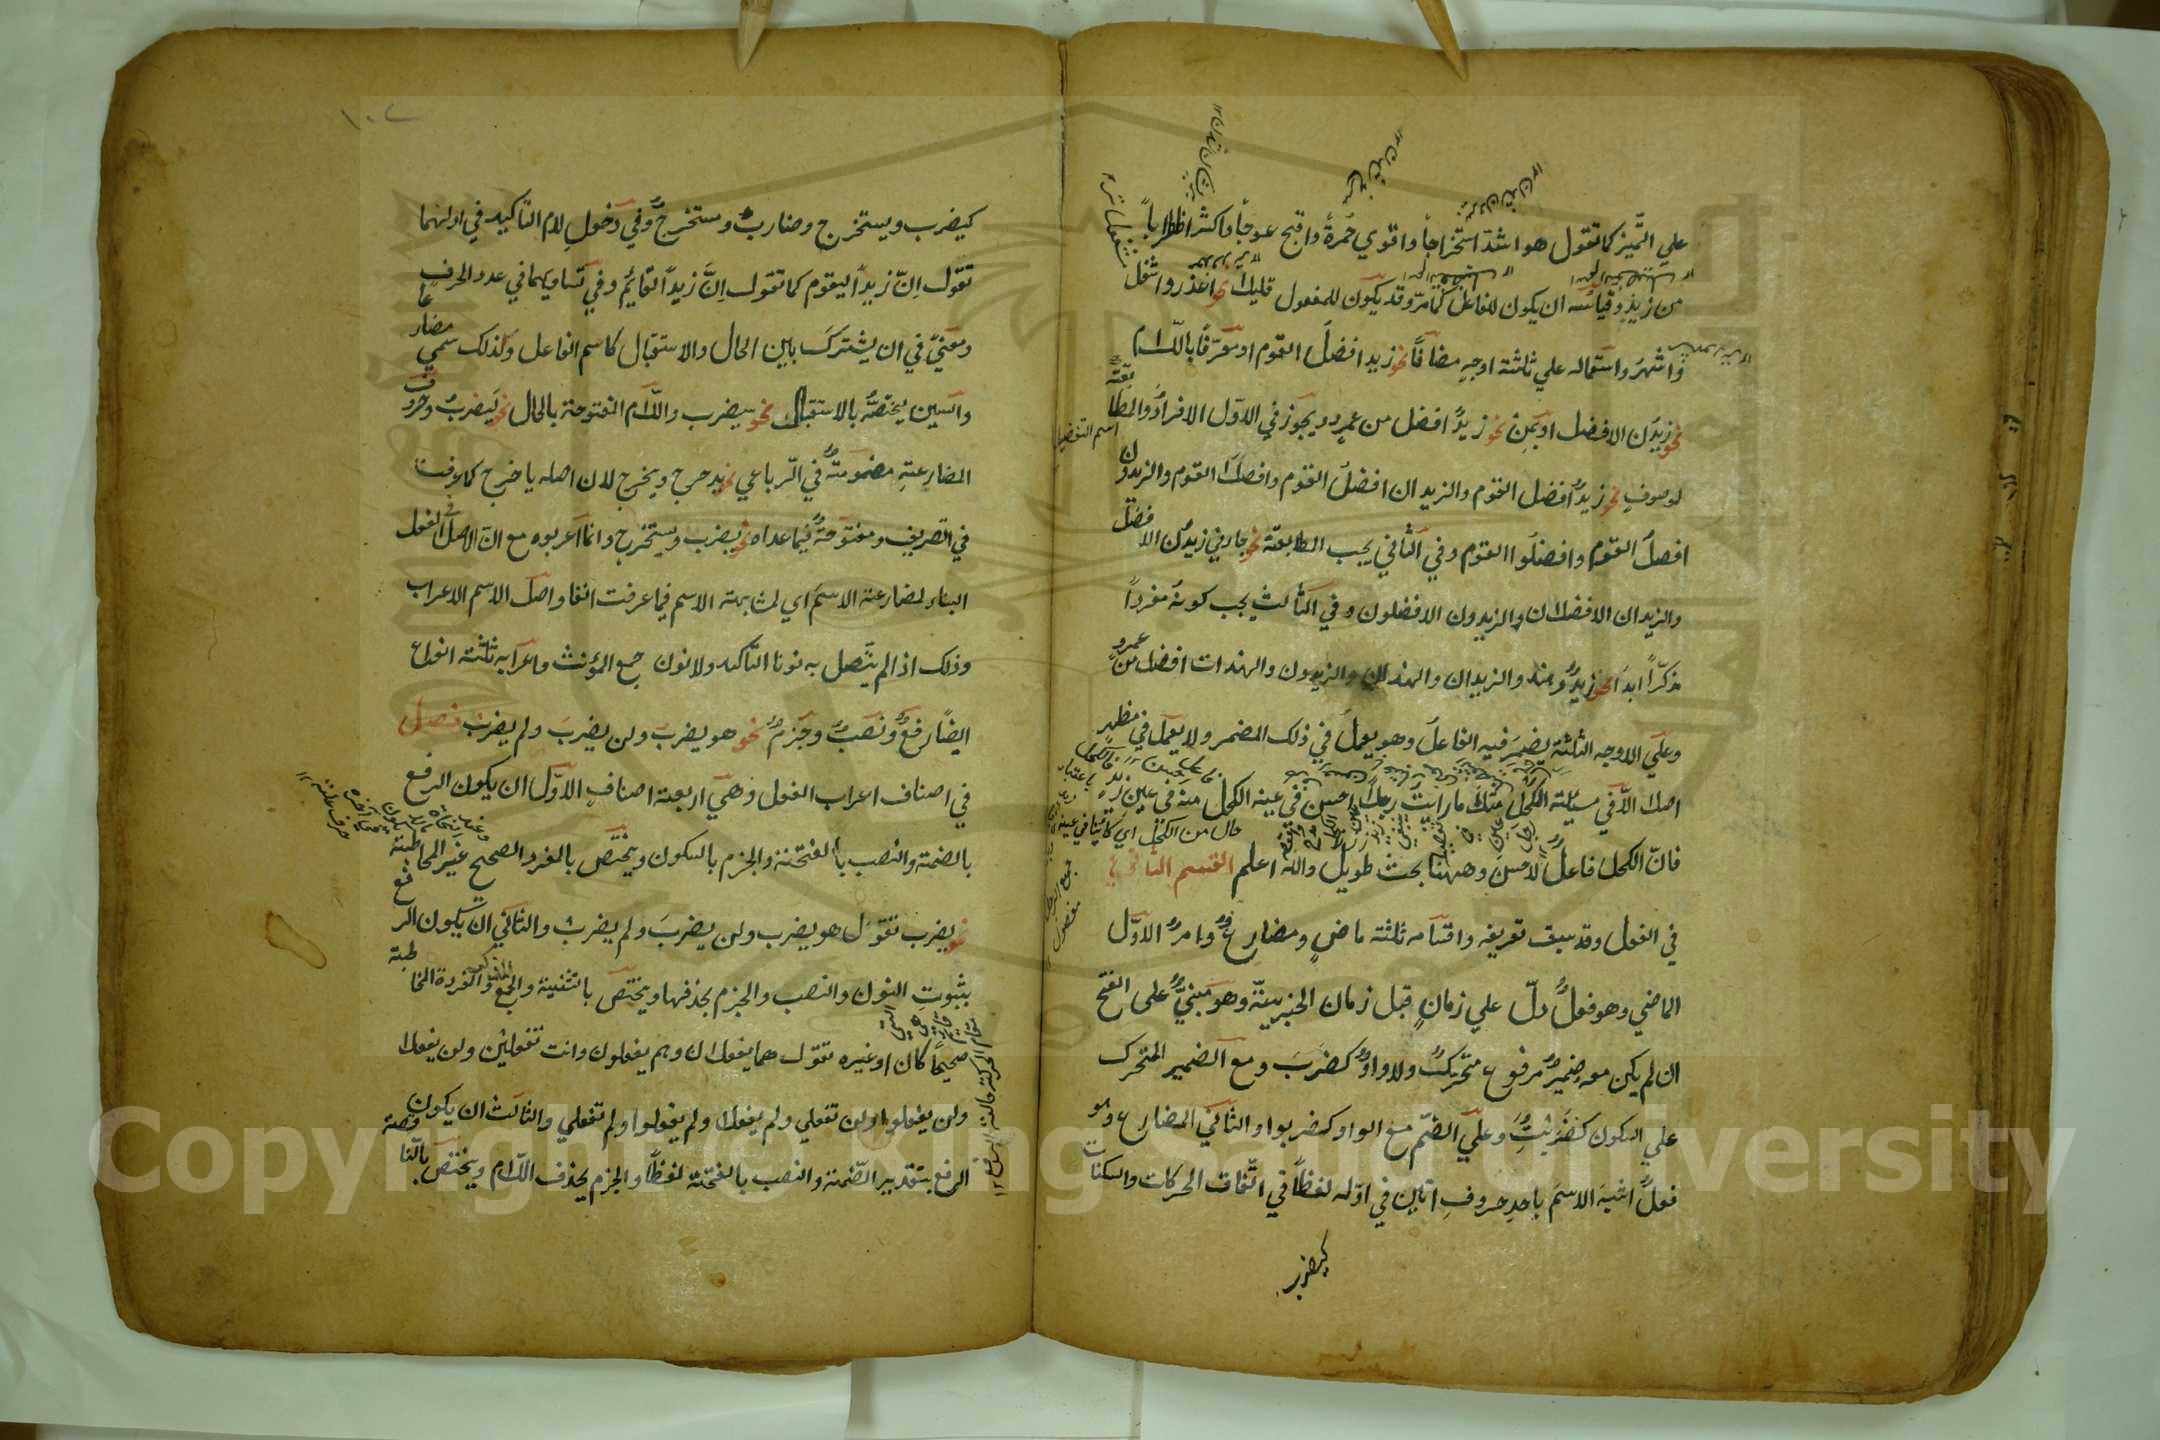 علي التّميز كما تقول هو اشدّ استخراجاً واقوي حُمرةً واقبح عوجاً واكثر اظطراباً
من زيدٍ وقياسُه ان يكون للفاعل كما مرّ وقد يكون للمفعول قليلا نحو اعذر واشغل
واشهرُ واستعماله علي ثلثة اوجهٍ مضافاً نحو زيد افضلُ القوم او معرّفاً باللّام
نحو زيدُن الافضل او بمن نحو زيدٌ افضل من عمرٍو ويجوز في الاوّل الافرادُ والمطابقة
لموصوفٍ نحو زيدٌ افضل القوم والزيدان افضلُ القوم وافضلا القوم والزيدون
افضلُ القوم وافضلُوا القوم وفي الثاني يجب المطابقة نحو جاءني زيدُن الافضل
والزيدان الافضلان والزيدون الافضلون وفي الثالث يجب كونه مفرداً
مذكّراً ابداً نحو زيدٌ وهند والزيدان والهندان والزيدون والهندات افضل من عمرو
وعلي الاوجه الثلثة يضمر فيه الفاعلُ وهو يعملُ في ذلك المضمر ولا يعمل في مظهر
اصلا الّا في مسئلة الكحل مثل ما رايتُ رجلاً احسن في عينه الكحل منه في عين زيدٍ
فانّ الكحل فاعلٌ لاحسن وههنا بحث طويل والله اعلم القسم الثاني
في الفعل وقد سبق تعريفه واقسامه ثلثة ماضٍ ومضارعٌ وامرٌ الاوّل
الماضي وهو فعلٌ دلّ علي زمانٍ قبل زمان الخبر بيّنة وهو مبنيٌّ على الفتح
ان لم يكن معه ضميرٌ مرفوع متحركٌ ولا واوٌ كضَرَبَ ومع الضمير المتحرك
علي السكون كضَرَبْتُ وعلي الضّم مع الواو كضربوا والثاني المضارع وهو
فعلٌ اشبه الاسمَ باحدِ حروفِ اتين في اوّله لفظاً في اتّفاق الحركات والسكنات
كيضرب
١٠٢
كيضرب ويستخرج وضاربٌ ومستخرجٌ وفي دخولِ لام التاكيد في اولهما
تقول اِنّ زيداً ليقوم كما تقول اِنَّ زيداً لقايمٌ وفي تساويهما في عدد الحرف
ومعنيً في ان يشترك بين الحال والاستقبال كاسم الفاعل ولذلك سمي مضارعا
والسين يختصّه بالاستقبال نحو سيضرب واللّام المفتوحة بالحال نحو لَيضربُ وحروف
المضارعةِ مضمومةٌ في الرّباعي نحو يدحرج ويخرج لان اصله يااخرج كما عرفت
في التصريف ومفتوحةٌ فيما عداه نحو يضرب ويستخرج وانما اعربوه مع انّ الاصل في الفعل
البناء لمضارعة الاسم اي لمشابهته الاسم فيما عرفت انفا واصل الاسم الاعراب
وذلك اذا لم يتّصل به نونا التاكيد ولا نون جمع المؤنث واعرابه ثلثة انواع
ايضاً رفعٌ ونصَبٌ وجزمٌ نحو هو يضربُ ولن يضربَ ولم يضربْ فصل
في اصناف اعراب الفعل وهي اربعة اصنافٍ الاوّل ان يكون الرفع
بالضمة والنصب بالفتحة والجزم بالسكون ويختصّ بالمفرد الصحيح غير المخاطبة
نحو يضرب تقول هو يضرب ولن يضربَ ولم يضربْ والثاني ان يكون الرفع
بثبوت النون والنصب والجزم بحذفها ويختصّ بالتثنية والجمع المذكر والمفردة المخاطبة
صحيحاً كان او غيره تقول هما يفعلان وهم يفعلون وانت تفعلين ولن يفعلا
ولن يفعلوا ولن تفعلي ولم يفعلا ولم يفعلوا ولم تفعلي والثالث ان يكون
الرفع بتقدير الضّمة والنصب بالفتحة لفظاً والجزم بحذف اللّام ويختصّ بالناقصة
Copyright © King Saud University